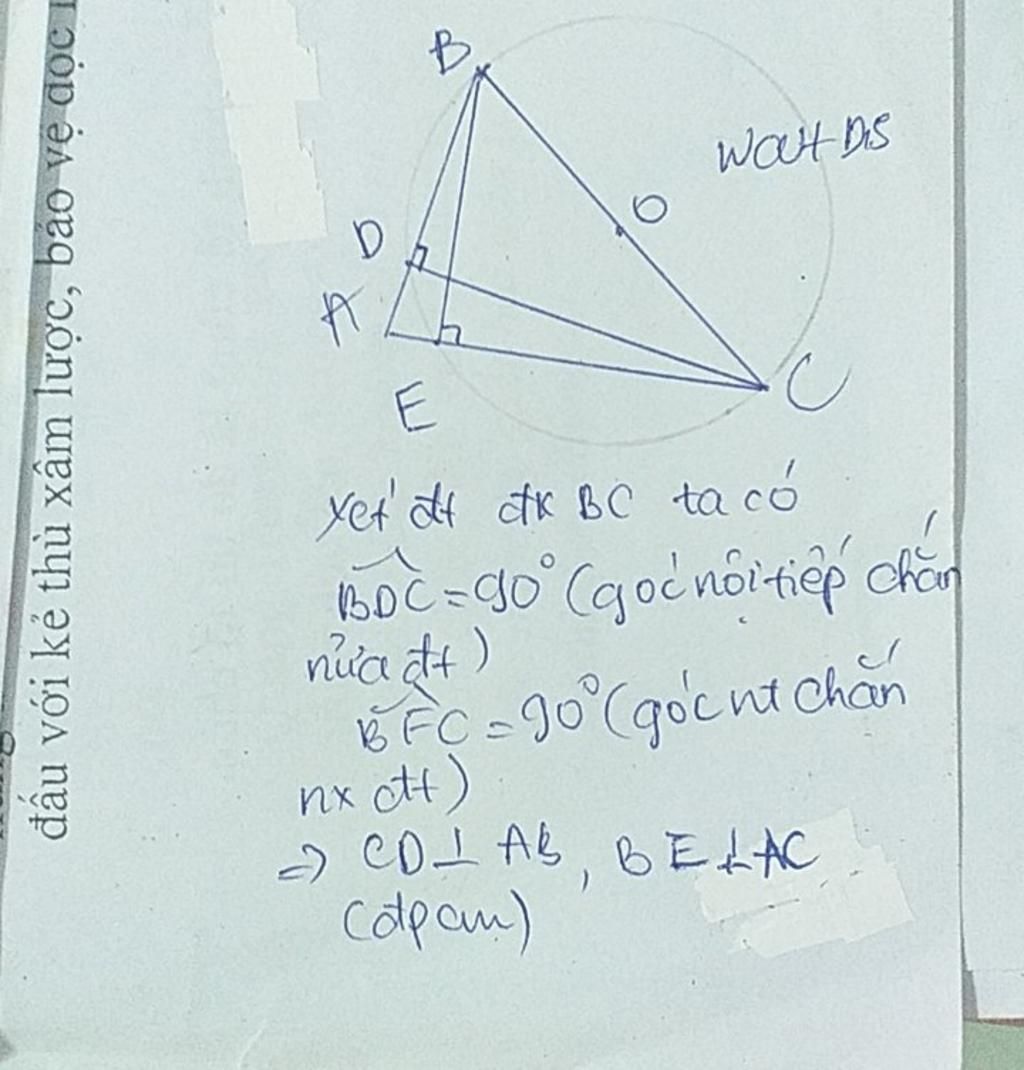 đấu với kẻ thù xâm lược, bảo vệ dọc
B
O
D
A
E
C
Xét đt đk BC ta có
BDC = 90° (góc nội tiếp chắn
nửa đt)
BEC = 90° (góc nt chắn
đt)
=> CD⊥AB, BE⊥AC
(đpcm)